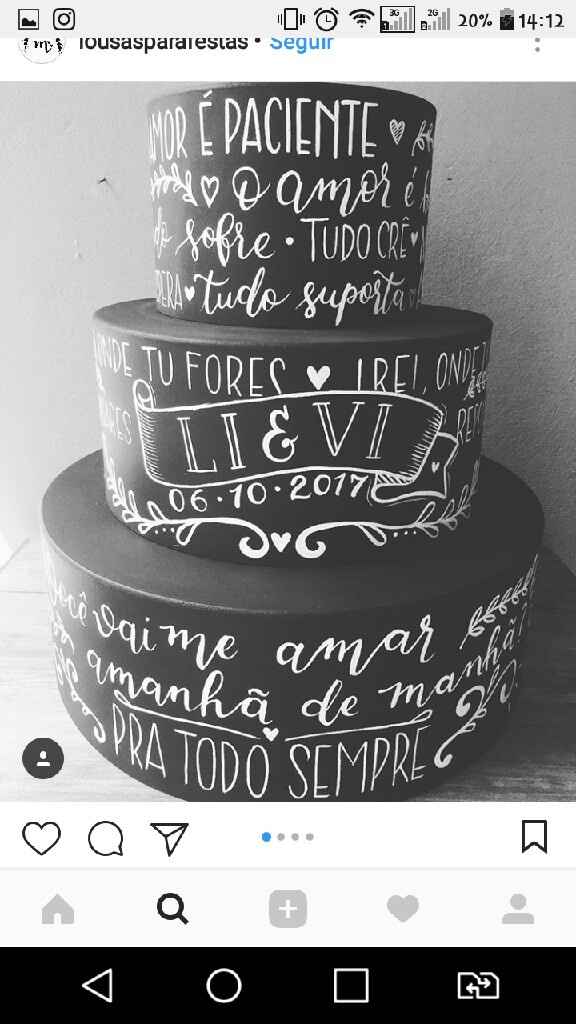 3G
2G
20%
14:12
lousasparafestas • Seguir
AMOR É PACIENTE
O amor é
sofre • TUDO CRÊ
tudo suporta
ONDE TU FORES IREI, ONDE
LI & VI
06•10•2017
você vai me amar
amanhã de manhã?
PRA TODO SEMPRE